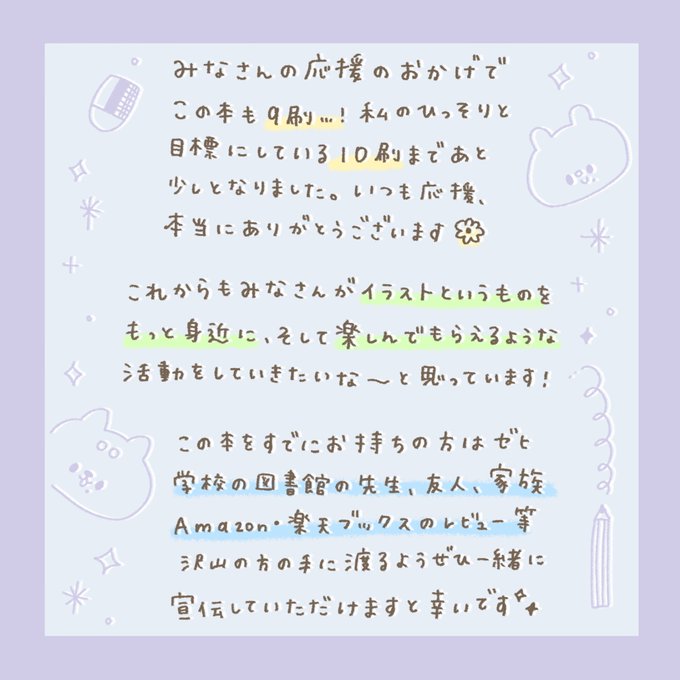 みなさんの応援のおかげで
この本も9刷…! 私のひっそりと
目標にしている10刷まであと
少しとなりました。いつも応援、
本当にありがとうございます
これからもみなさんがイラストというものを
もっと身近に、そして楽しんでもらえるような
活動をしていきたいな〜と思っています!
この本をすでにお持ちの方はゼヒ
学校の図書館の先生、友人、家族
Amazon・楽天ブックスのレビュー等
沢山の方の手に渡るようぜひ一緒に
宣伝していただけますと幸いです